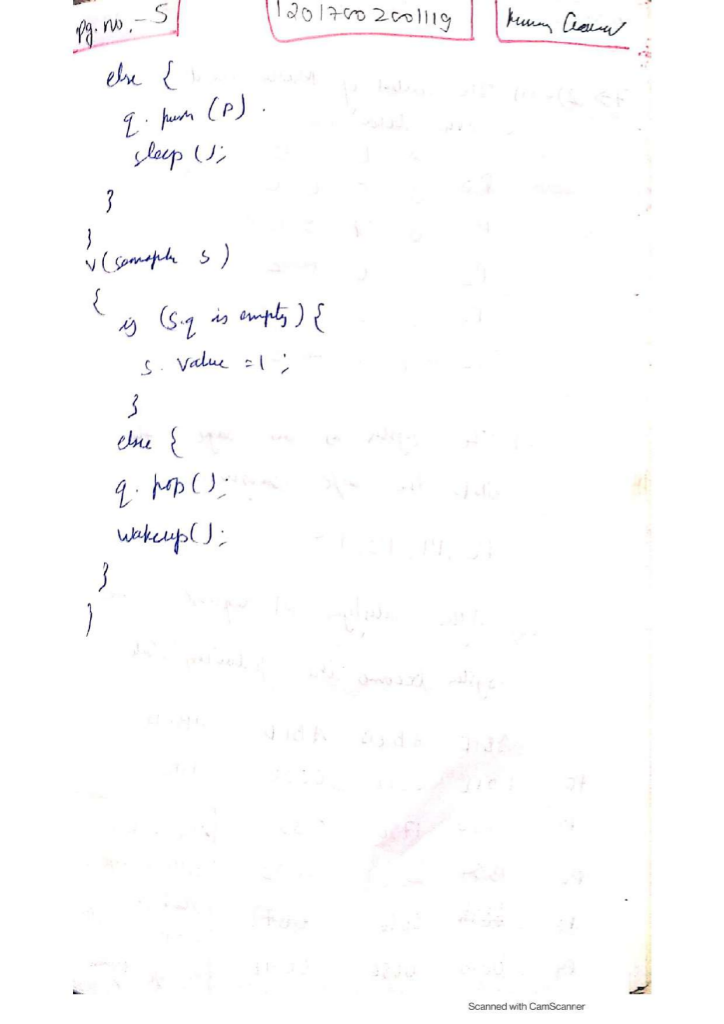 Pg. no. - 5
12017002001119
else {
q. push (P) .
sleep ();
}
}
V (semaphore s)
{
if (S.q is empty) {
s. value = 1 ;
}
else {
q. pop ();
wakeup();
}
}
Scanned with CamScanner